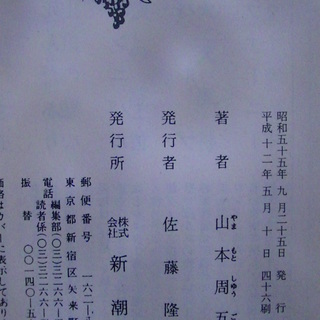 昭和五十五年九月二十五日発行
平成十二年五月十日四十六刷
著者 山本周五
やまもとしゅうご
発行者 佐藤隆
発行所 株式会社 新潮
郵便番号 一六二―
東京都新宿区矢来
電話 編集部(〇三)三二六六―
読者係(〇三)三二六六―
振替 〇〇一四〇―五
価格はカバーに表示してあり